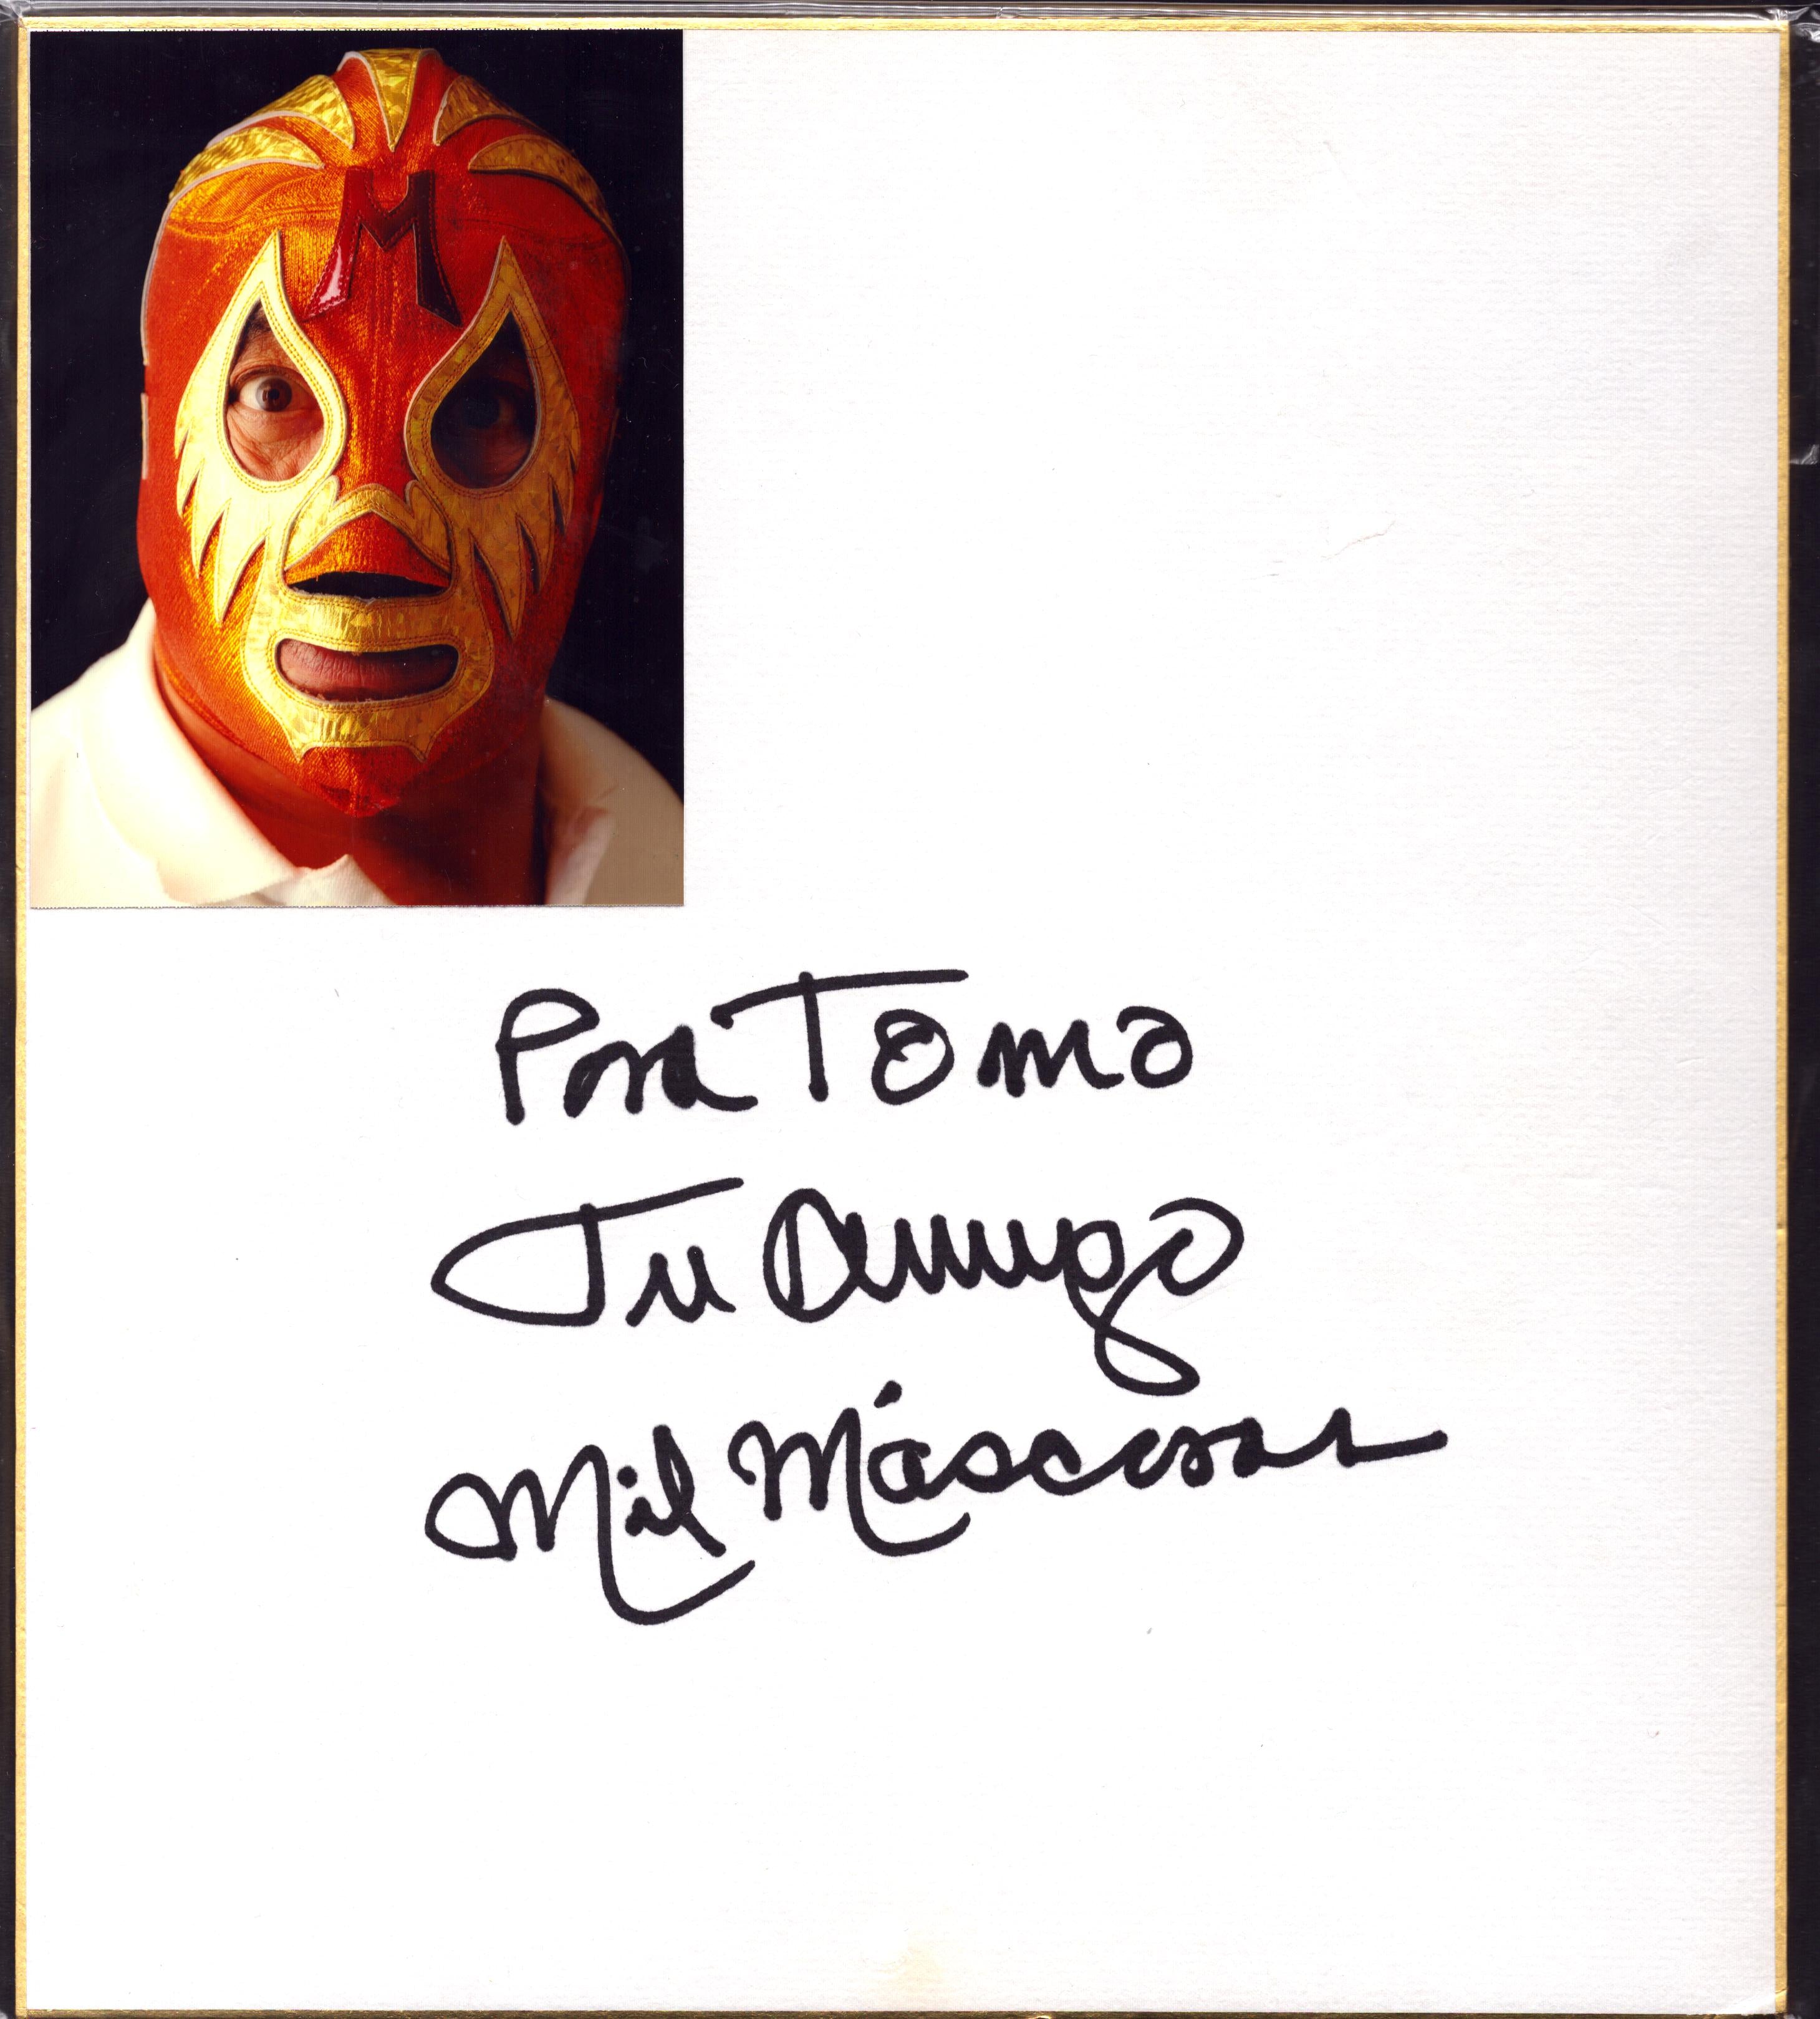 M
Para Tomo
Tu Amigo
Mil Máscaras